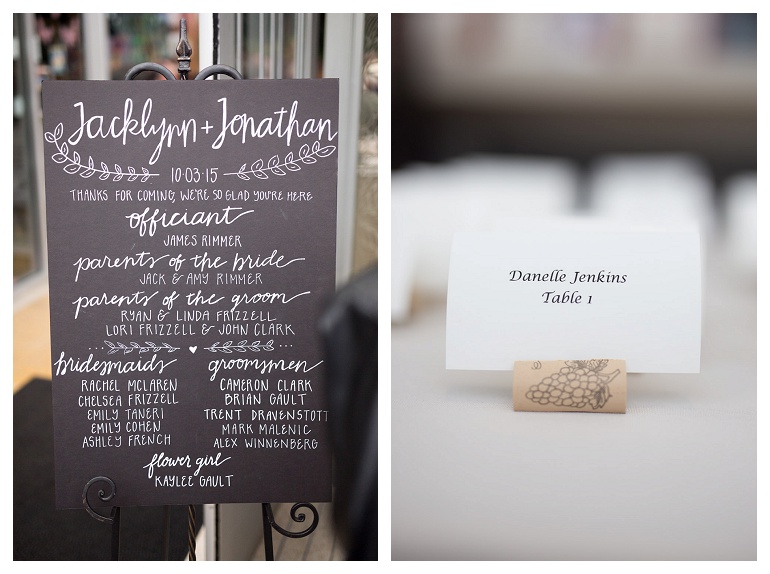 Jacklynn + Jonathan
10·03·15
THANKS FOR COMING, WE'RE SO GLAD YOU'RE HERE
officiant
JAMES RIMMER
parents of the bride
JACK & AMY RIMMER
parents of the groom
RYAN & LINDA FRIZZELL
LORI FRIZZELL & JOHN CLARK
bridesmaids
RACHEL MCLAREN
CHELSEA FRIZZELL
EMILY TANERI
EMILY COHEN
ASHLEY FRENCH
groomsmen
CAMERON CLARK
BRIAN GAULT
TRENT DRAVENSTOTT
MARK MALENIC
ALEX WINNENBERG
flower girl
KAYLEE GAULT
Danelle Jenkins
Table 1